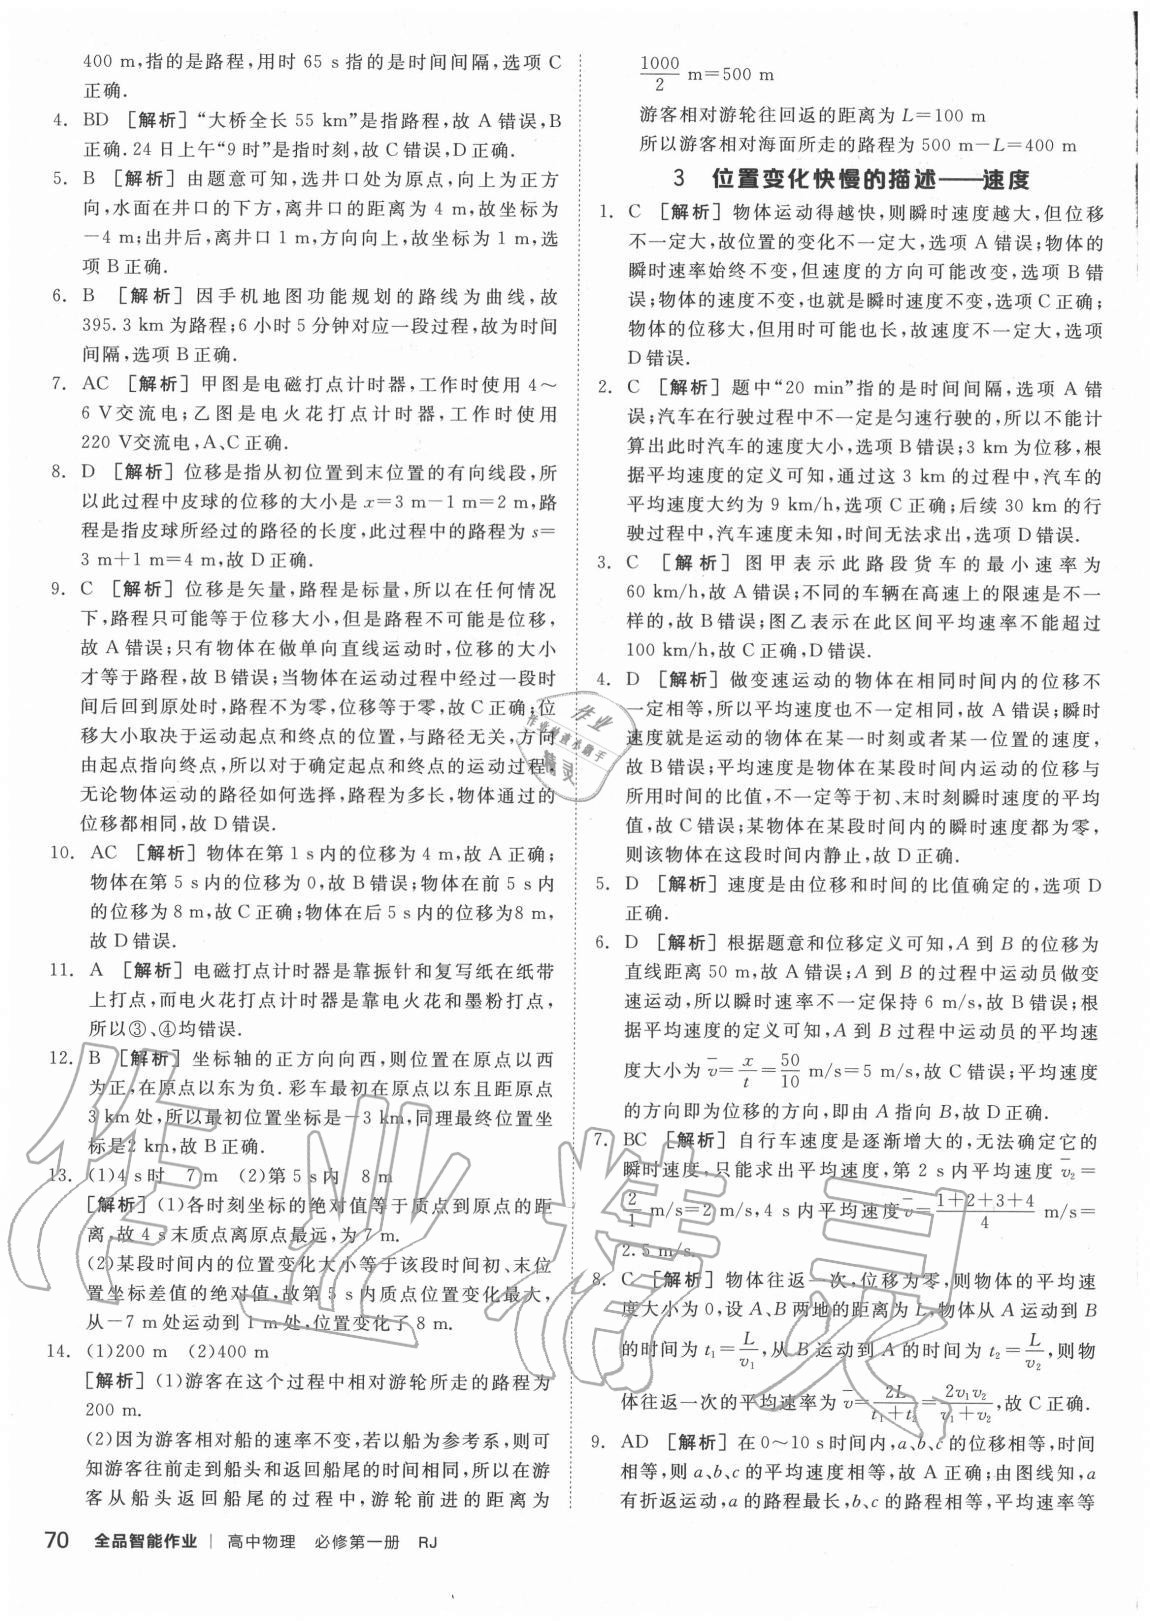 400 m,指的是路程,用时 65 s 指的是时间间隔,选项 C
正确.
4. BD [解析]“大桥全长 55 km”是指路程,故 A 错误,B
正确.24 日上午“9 时”是指时刻,故 C 错误,D 正确.
5. B [解析] 由题意可知,选井口处为原点,向上为正方
向,水面在井口的下方,离井口的距离为 4 m,故坐标为
-4 m;出井后,离井口 1 m,方向向上,故坐标为 1 m,选
项 B 正确.
6. B [解析] 因手机地图功能规划的路线为曲线,故
395.3 km 为路程;6 小时 5 分钟对应一段过程,故为时间
间隔,选项 B 正确.
7. AC [解析] 甲图是电磁打点计时器,工作时使用 4~
6 V交流电;乙图是电火花打点计时器,工作时使用
220 V交流电,A、C 正确.
8. D [解析] 位移是指从初位置到末位置的有向线段,所
以此过程中皮球的位移的大小是 x=3 m-1 m=2 m,路
程是指皮球所经过的路径的长度,此过程中的路程为 s=
3 m+1 m=4 m,故 D 正确.
9. C [解析] 位移是矢量,路程是标量,所以在任何情况
下,路程只可能等于位移大小,但是路程不可能是位移,
故 A 错误;只有物体在做单向直线运动时,位移的大小
才等于路程,故 B 错误;当物体在运动过程中经过一段时
间后回到原处时,路程不为零,位移等于零,故 C 正确;位
移大小取决于运动起点和终点的位置,与路径无关,方向
由起点指向终点,所以对于确定起点和终点的运动过程,
无论物体运动的路径如何选择,路程为多长,物体通过的
位移都相同,故 D 错误.
10. AC [解析] 物体在第 1 s 内的位移为 4 m,故 A 正确;
物体在第 5 s 内的位移为 0,故 B 错误;物体在前 5 s 内
的位移为 8 m,故 C 正确;物体在后 5 s 内的位移为8 m,
故 D 错误.
11. A [解析] 电磁打点计时器是靠振针和复写纸在纸带
上打点,而电火花打点计时器是靠电火花和墨粉打点,
所以③、④均错误.
12. B [解析] 坐标轴的正方向向西,则位置在原点以西
为正,在原点以东为负.彩车最初在原点以东且距原点
3 km 处,所以最初位置坐标是-3 km,同理最终位置坐
标是2 km,故 B 正确.
13. (1)4 s 时 7 m (2)第 5 s 内 8 m
[解析] (1)各时刻坐标的绝对值等于质点到原点的距
离,故 4 s 末质点离原点最远,为 7 m.
(2)某段时间内的位置变化大小等于该段时间初、末位
置坐标差值的绝对值,故第 5 s 内质点位置变化最大,
从-7 m 处运动到 1 m 处,位置变化了 8 m.
14. (1)200 m (2)400 m
[解析] (1)游客在这个过程中相对游轮所走的路程为
200 m.
(2)因为游客相对船的速率不变,若以船为参考系,则可
知游客往前走到船头和返回船尾的时间相同,所以在游
客从船头返回船尾的过程中,游轮前进的距离为
1000/2 m=500 m
游客相对游轮往回返的距离为 L=100 m
所以游客相对海面所走的路程为 500 m-L=400 m
3 位置变化快慢的描述——速度
1. C [解析] 物体运动得越快,则瞬时速度越大,但位移
不一定大,故位置的变化不一定大,选项 A 错误;物体的
瞬时速率始终不变,但速度的方向可能改变,选项 B 错
误;物体的速度不变,也就是瞬时速度不变,选项 C 正确;
物体的位移大,但用时可能也长,故速度不一定大,选项
D 错误.
2. C [解析] 题中“20 min”指的是时间间隔,选项 A 错
误;汽车在行驶过程中不一定是匀速行驶的,所以不能计
算出此时汽车的速度大小,选项 B 错误;3 km 为位移,根
据平均速度的定义可知,通过这 3 km 的过程中,汽车的
平均速度大约为 9 km/h,选项 C 正确;后续 30 km 的行
驶过程中,汽车速度未知,时间无法求出,选项 D 错误.
3. C [解析] 图甲表示此路段货车的最小速率为
60 km/h,故 A 错误;不同的车辆在高速上的限速是不一
样的,故 B 错误;图乙表示在此区间平均速率不能超过
100 km/h,故 C 正确,D 错误.
4. D [解析] 做变速运动的物体在相同时间内的位移不
一定相等,所以平均速度也不一定相同,故 A 错误;瞬时
速度就是运动的物体在某一时刻或者某一位置的速度,
故 B 错误;平均速度是物体在某段时间内运动的位移与
所用时间的比值,不一定等于初、末时刻瞬时速度的平均
值,故 C 错误;某物体在某段时间内的瞬时速度都为零,
则该物体在这段时间内静止,故 D 正确.
5. D [解析] 速度是由位移和时间的比值确定的,选项 D
正确.
6. D [解析] 根据题意和位移定义可知,A 到 B 的位移为
直线距离 50 m,故 A 错误;A 到 B 的过程中运动员做变
速运动,所以瞬时速率不一定保持 6 m/s,故 B 错误;根
据平均速度的定义可知,A 到 B 过程中运动员的平均速
度大小为 v̄=x/t=50/10 m/s=5 m/s,故 C 错误;平均速度
的方向即为位移的方向,即由 A 指向 B,故 D 正确.
7. BC [解析] 自行车速度是逐渐增大的,无法确定它的
瞬时速度,只能求出平均速度,第 2 s 内平均速度 v̄₂=
2/1 m/s=2 m/s,4 s 内平均速度 v̄=(1+2+3+4)/4 m/s=
2.5 m/s.
8. C [解析] 物体往返一次,位移为零,则物体的平均速
度大小为 0,设 A、B 两地的距离为 L,物体从 A 运动到 B
的时间为 t₁=L/v₁,从 B 运动到 A 的时间为 t₂=L/v₂,则物
体往返一次的平均速率为 v̄=2L/(t₁+t₂)=2v₁v₂/(v₁+v₂),故 C 正确.
9. AD [解析] 在 0~10 s 时间内,a、b、c 的位移相等,时间
相等,则 a、b、c 的平均速度相等,故 A 正确;由图线知,a
有折返运动,a 的路程最长,b、c 的路程相等,平均速率等
70 全品智能作业 | 高中物理 必修第一册 RJ
作业精灵